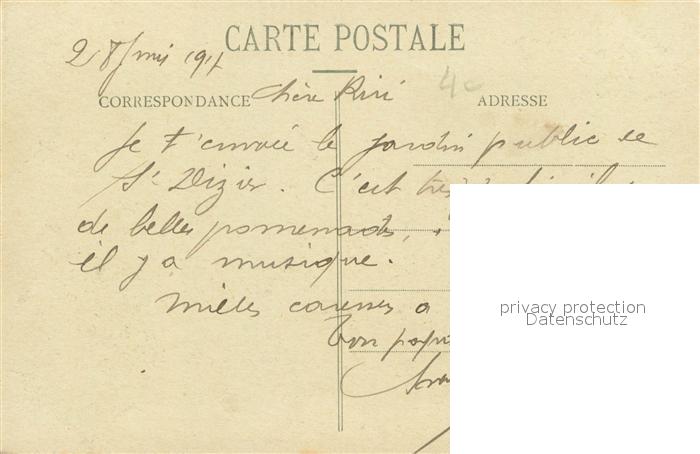 CARTE POSTALE
28 mai 191
CORRESPONDANCE Chère Riri
40
ADRESSE
Je t'envoie le jardin public de
St Dizier. C'est très
de belles promenades,
il y a musique.
Milles caresses a
ton papa
privacy protection
Datenschutz